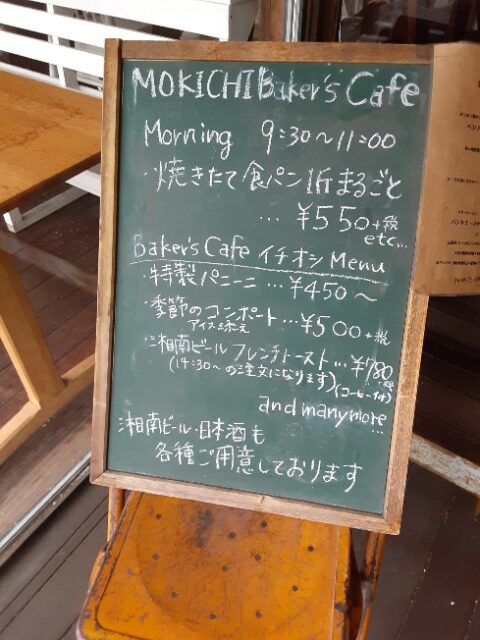 MOKICHI Baker's Cafe
Morning 9:30〜11:00
・焼きたて食パン1斤まるごと
… ¥550+税
etc...
Baker's Cafe イチオシ Menu
・特製パニーニ … ¥450〜
・季節のコンポート … ¥500+税
アイス添え
・湘南ビールフレンチトースト … ¥780
+税
(14:30〜の注文になります)(コーヒー付)
and many more...
湘南ビール・日本酒も
各種ご用意しております